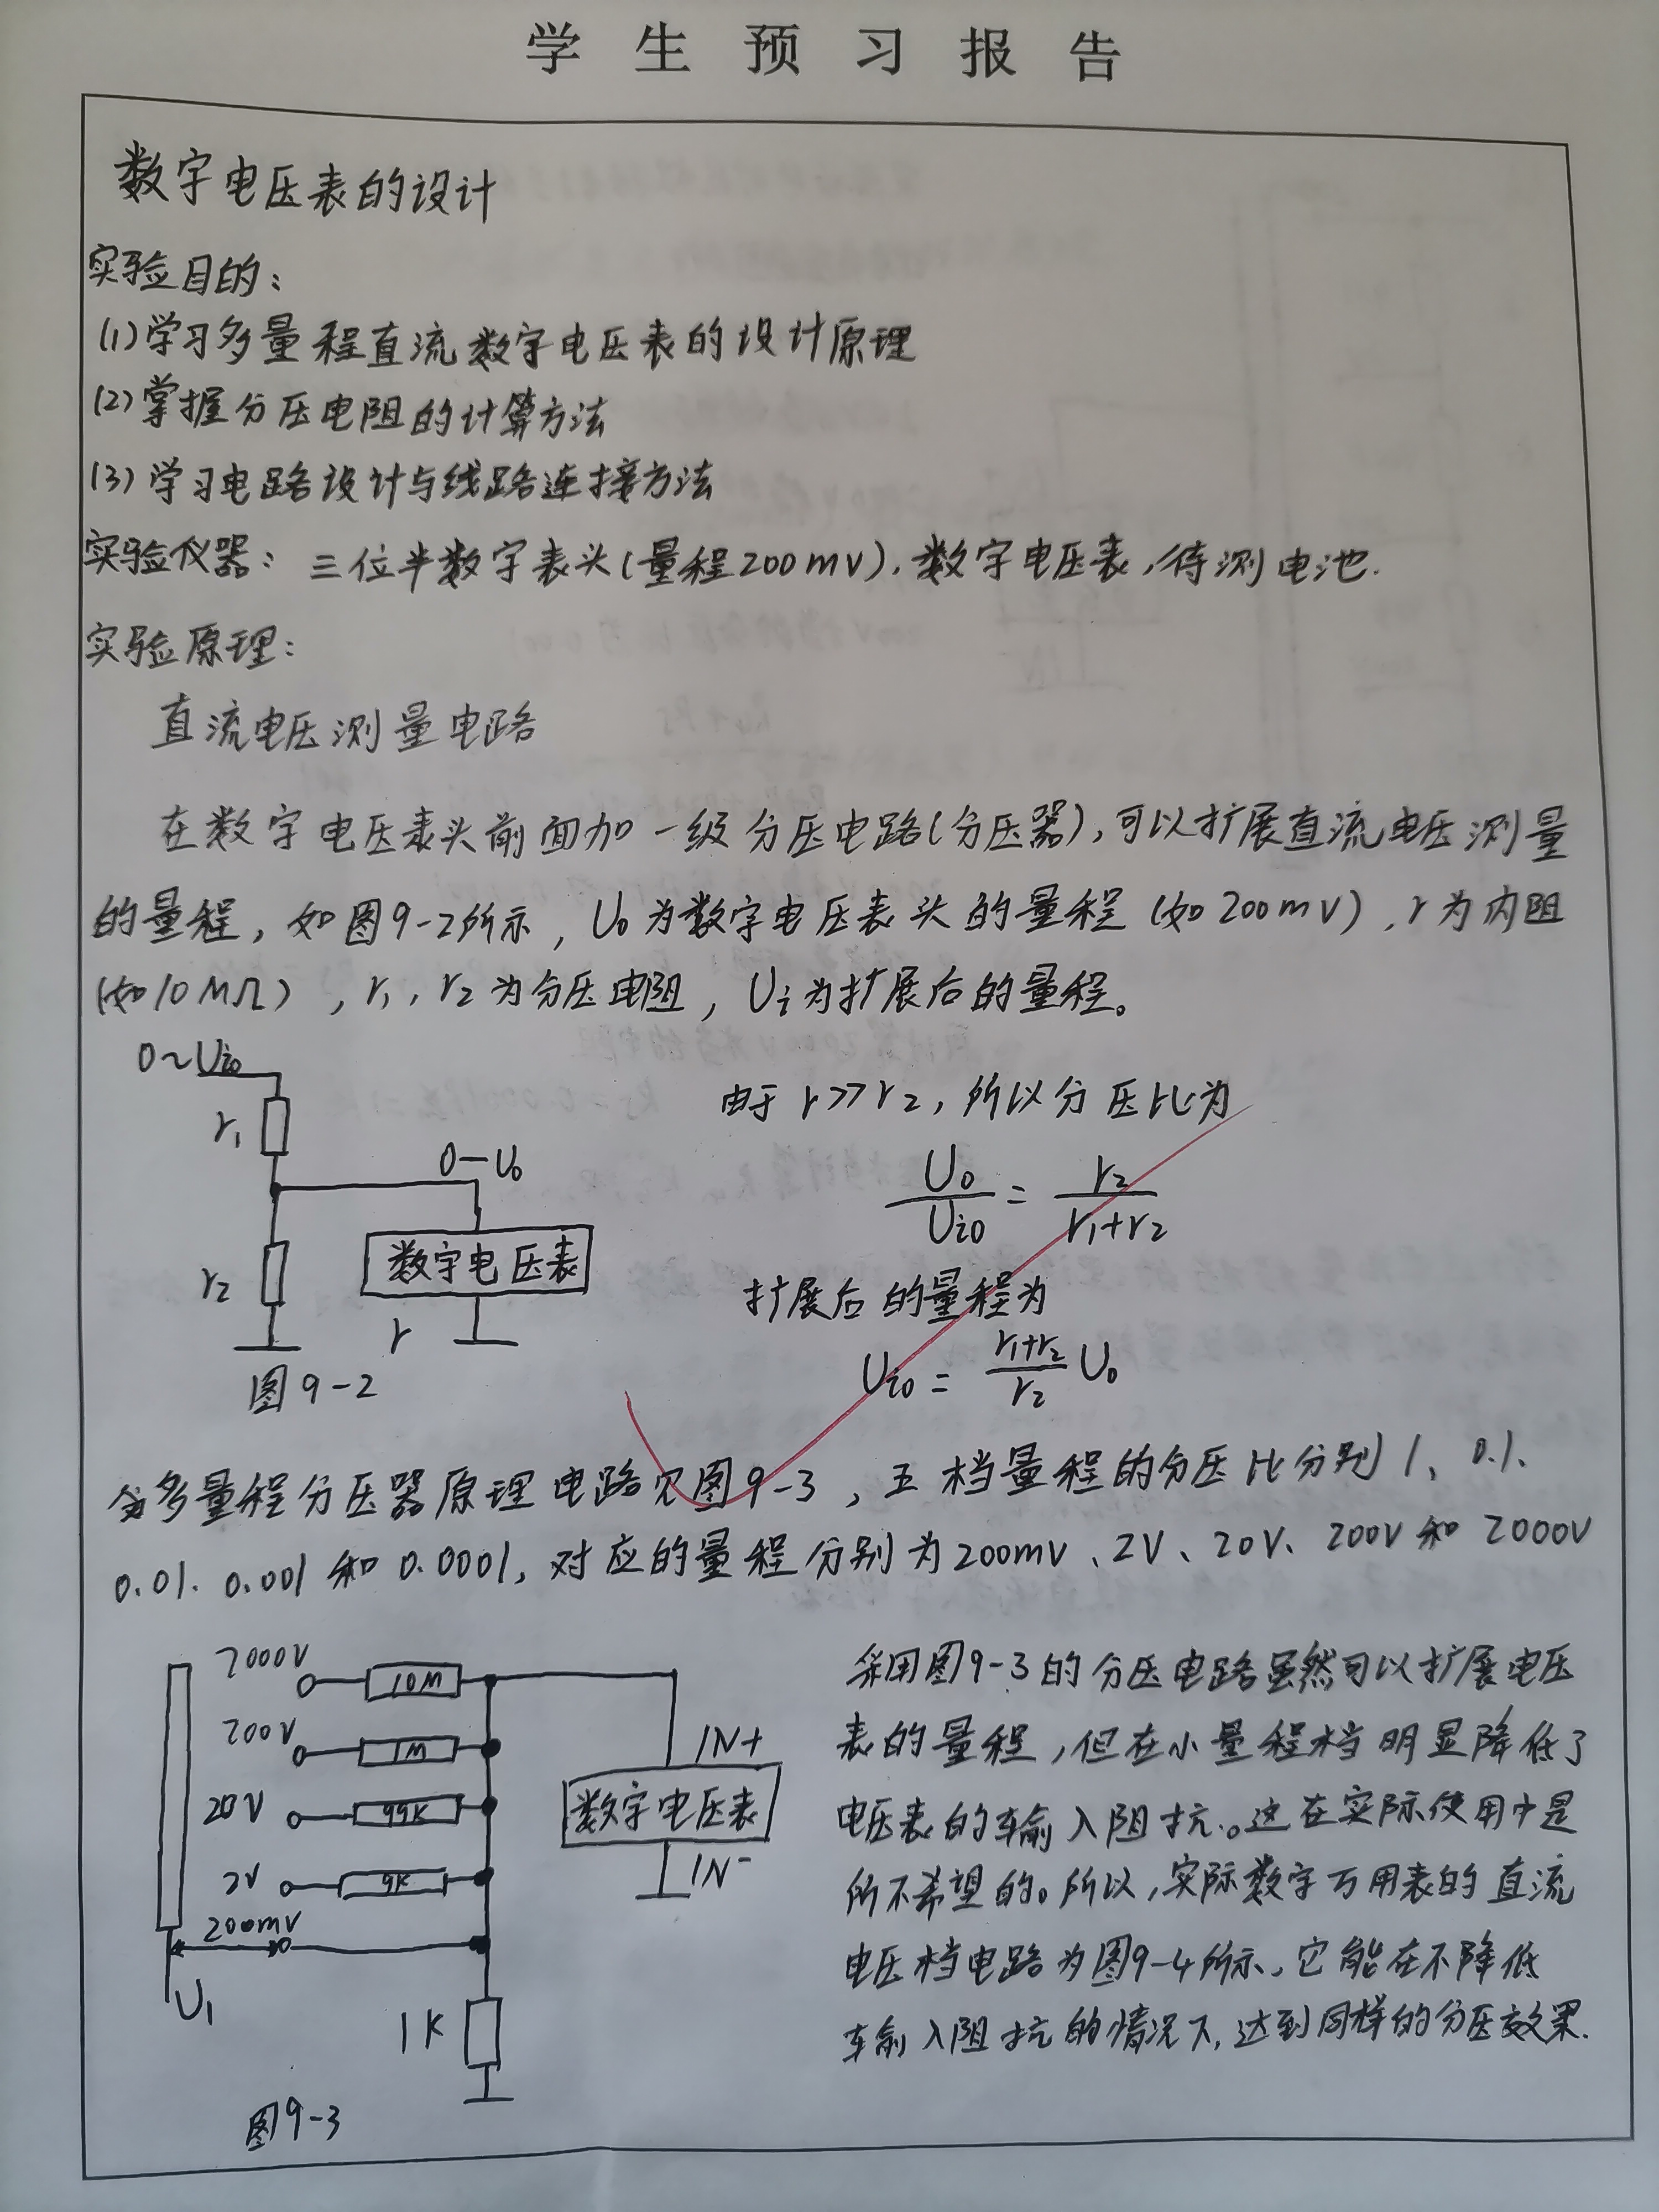 学生预习报告
数字电压表的设计
实验目的：
(1)学习多量程直流数字电压表的设计原理
(2)掌握分压电阻的计算方法
(3)学习电路设计与线路连接方法
实验仪器：三位半数字表头(量程200mV)，数字电压表，待测电池.
实验原理：
直流电压测量电路
在数字电压表头前面加一级分压电路(分压器)，可以扩展直流电压测量
的量程，如图9-2所示，U₀为数字电压表头的量程(如200mV)，r为内阻
(如10MΩ)，r₁，r₂为分压电阻，Ui为扩展后的量程。
0~Ui₀
r₁
0—U₀
r₂
数字电压表
r
图9-2
由于r>>r₂，所以分压比为
U₀/Ui₀ = r₂/(r₁+r₂)
扩展后的量程为
Ui₀ = (r₁+r₂)/r₂ U₀
多量程分压器原理电路见图9-3，五档量程的分压比分别1、0.1、
0.01、0.001和0.0001，对应的量程分别为200mV、2V、20V、200V和2000V
2000V
10M
200V
1M
IN+
20V
99K
数字电压表
2V
9K
IN-
200mV
U₁
1K
图9-3
采用图9-3的分压电路虽然可以扩展电压
表的量程，但在小量程档明显降低了
电压表的输入阻抗。这在实际使用中是
所不希望的。所以，实际数字万用表的直流
电压档电路为图9-4所示，它能在不降低
输入阻抗的情况下，达到同样的分压效果.